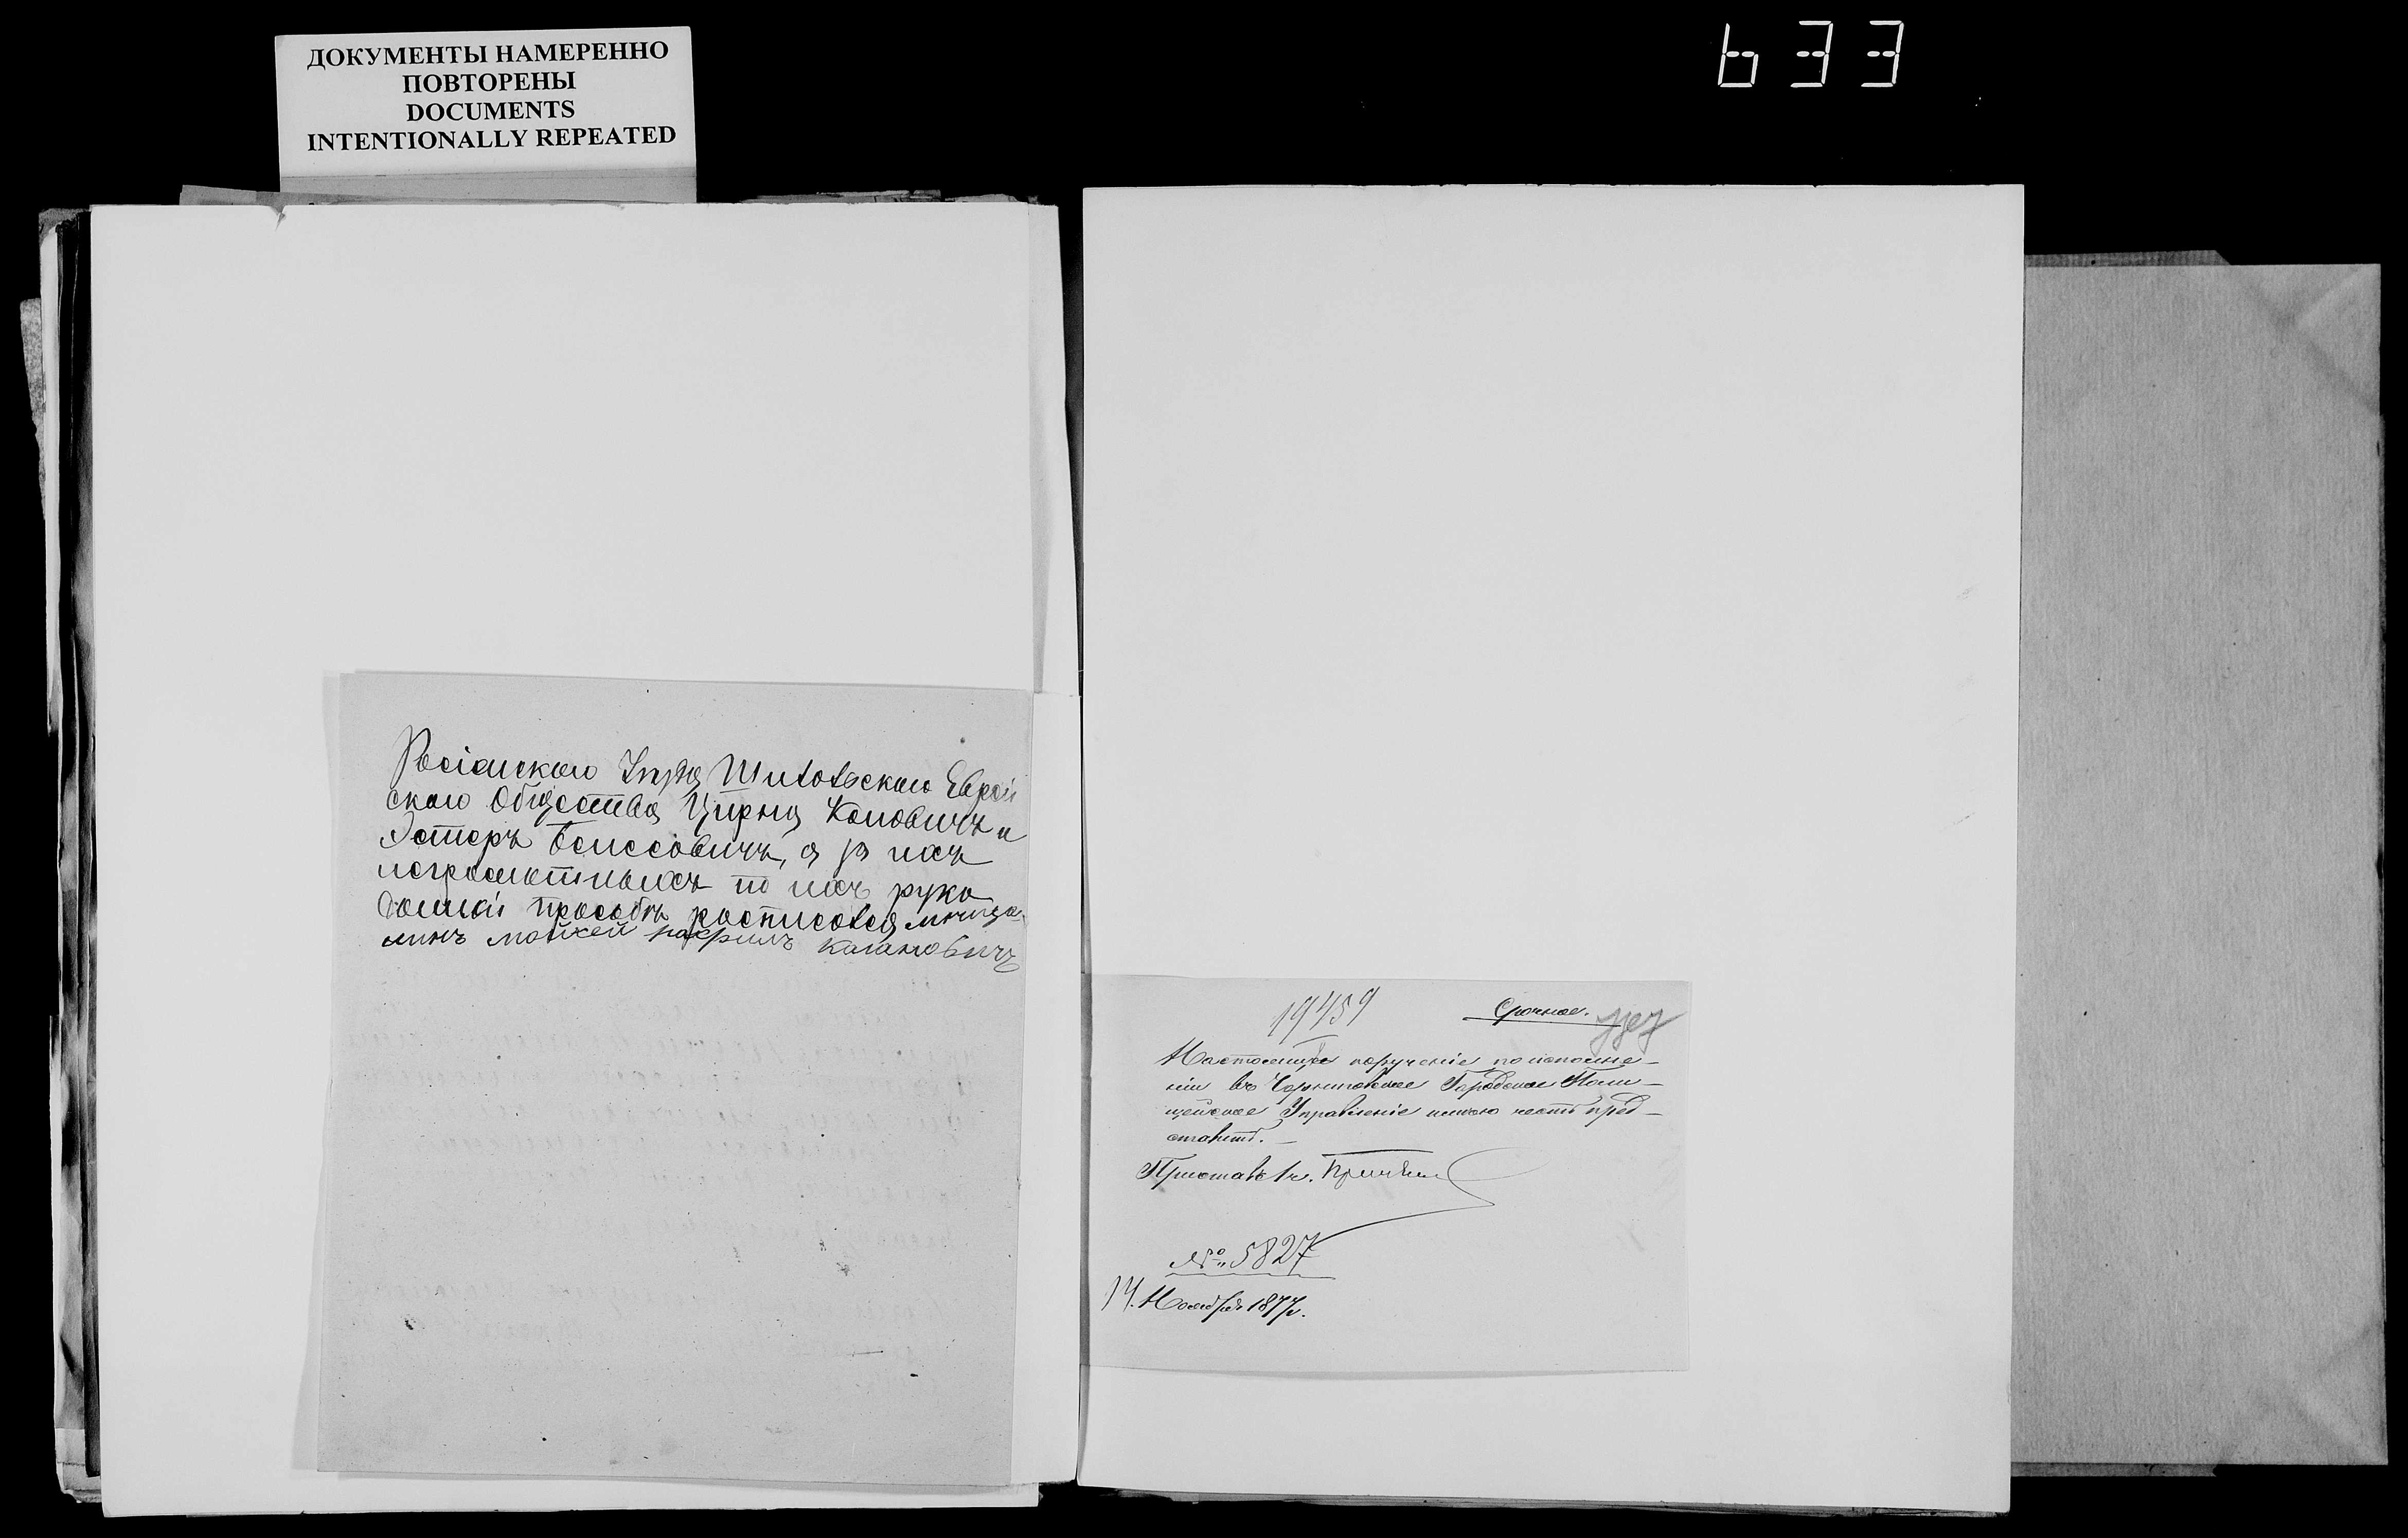 ДОКУМЕНТЫ НАМЕРЕННО
ПОВТОРЕНЫ
DOCUMENTS
INTENTIONALLY REPEATED
633
Росіенскаго Уезда Шиловскаго Еврей
скаго Общества Цирна Каповичъ и
Эстеръ Бениссовичъ, а за ихъ
неграмотныхъ по ихъ руко
данной прозбѣ росписовся мѣща
нинъ Кагановичъ
19459
Срочное.
Настоящее порученіе по исполне-
ніи въ Городское Поли-
цейское Управленіе имѣю честь пред-
ставить.
Приставъ 1 ч.
№ 5827
14. Ноября 1877 г.